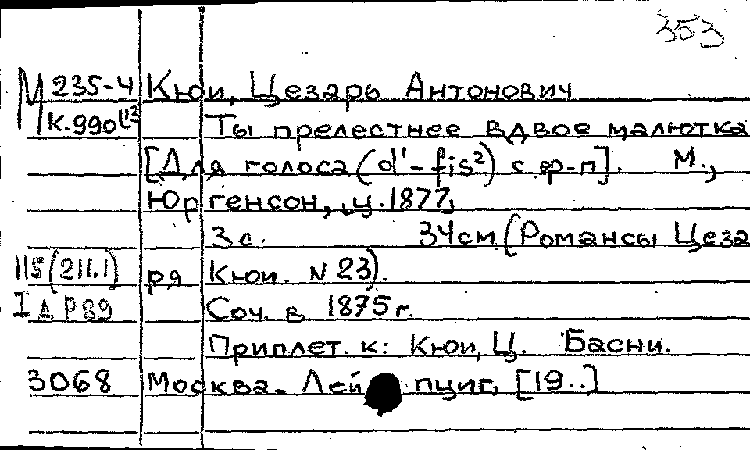 353
М 235-4 Кюи, Цезарь Антонович
К.990 Ты прелестнее вдвое малютка
[Для голоса (d'-fis²) с ф-п]. М.,
Юргенсон, ц.1877.
3 с. 34см (Романсы Цеза
115(211.1) ря Кюи. N 23).
I д Р89 Соч. в 1875г.
Приплет. к: Кюи, Ц. Басни.
3068 Москва. Лейпциг, [19..]